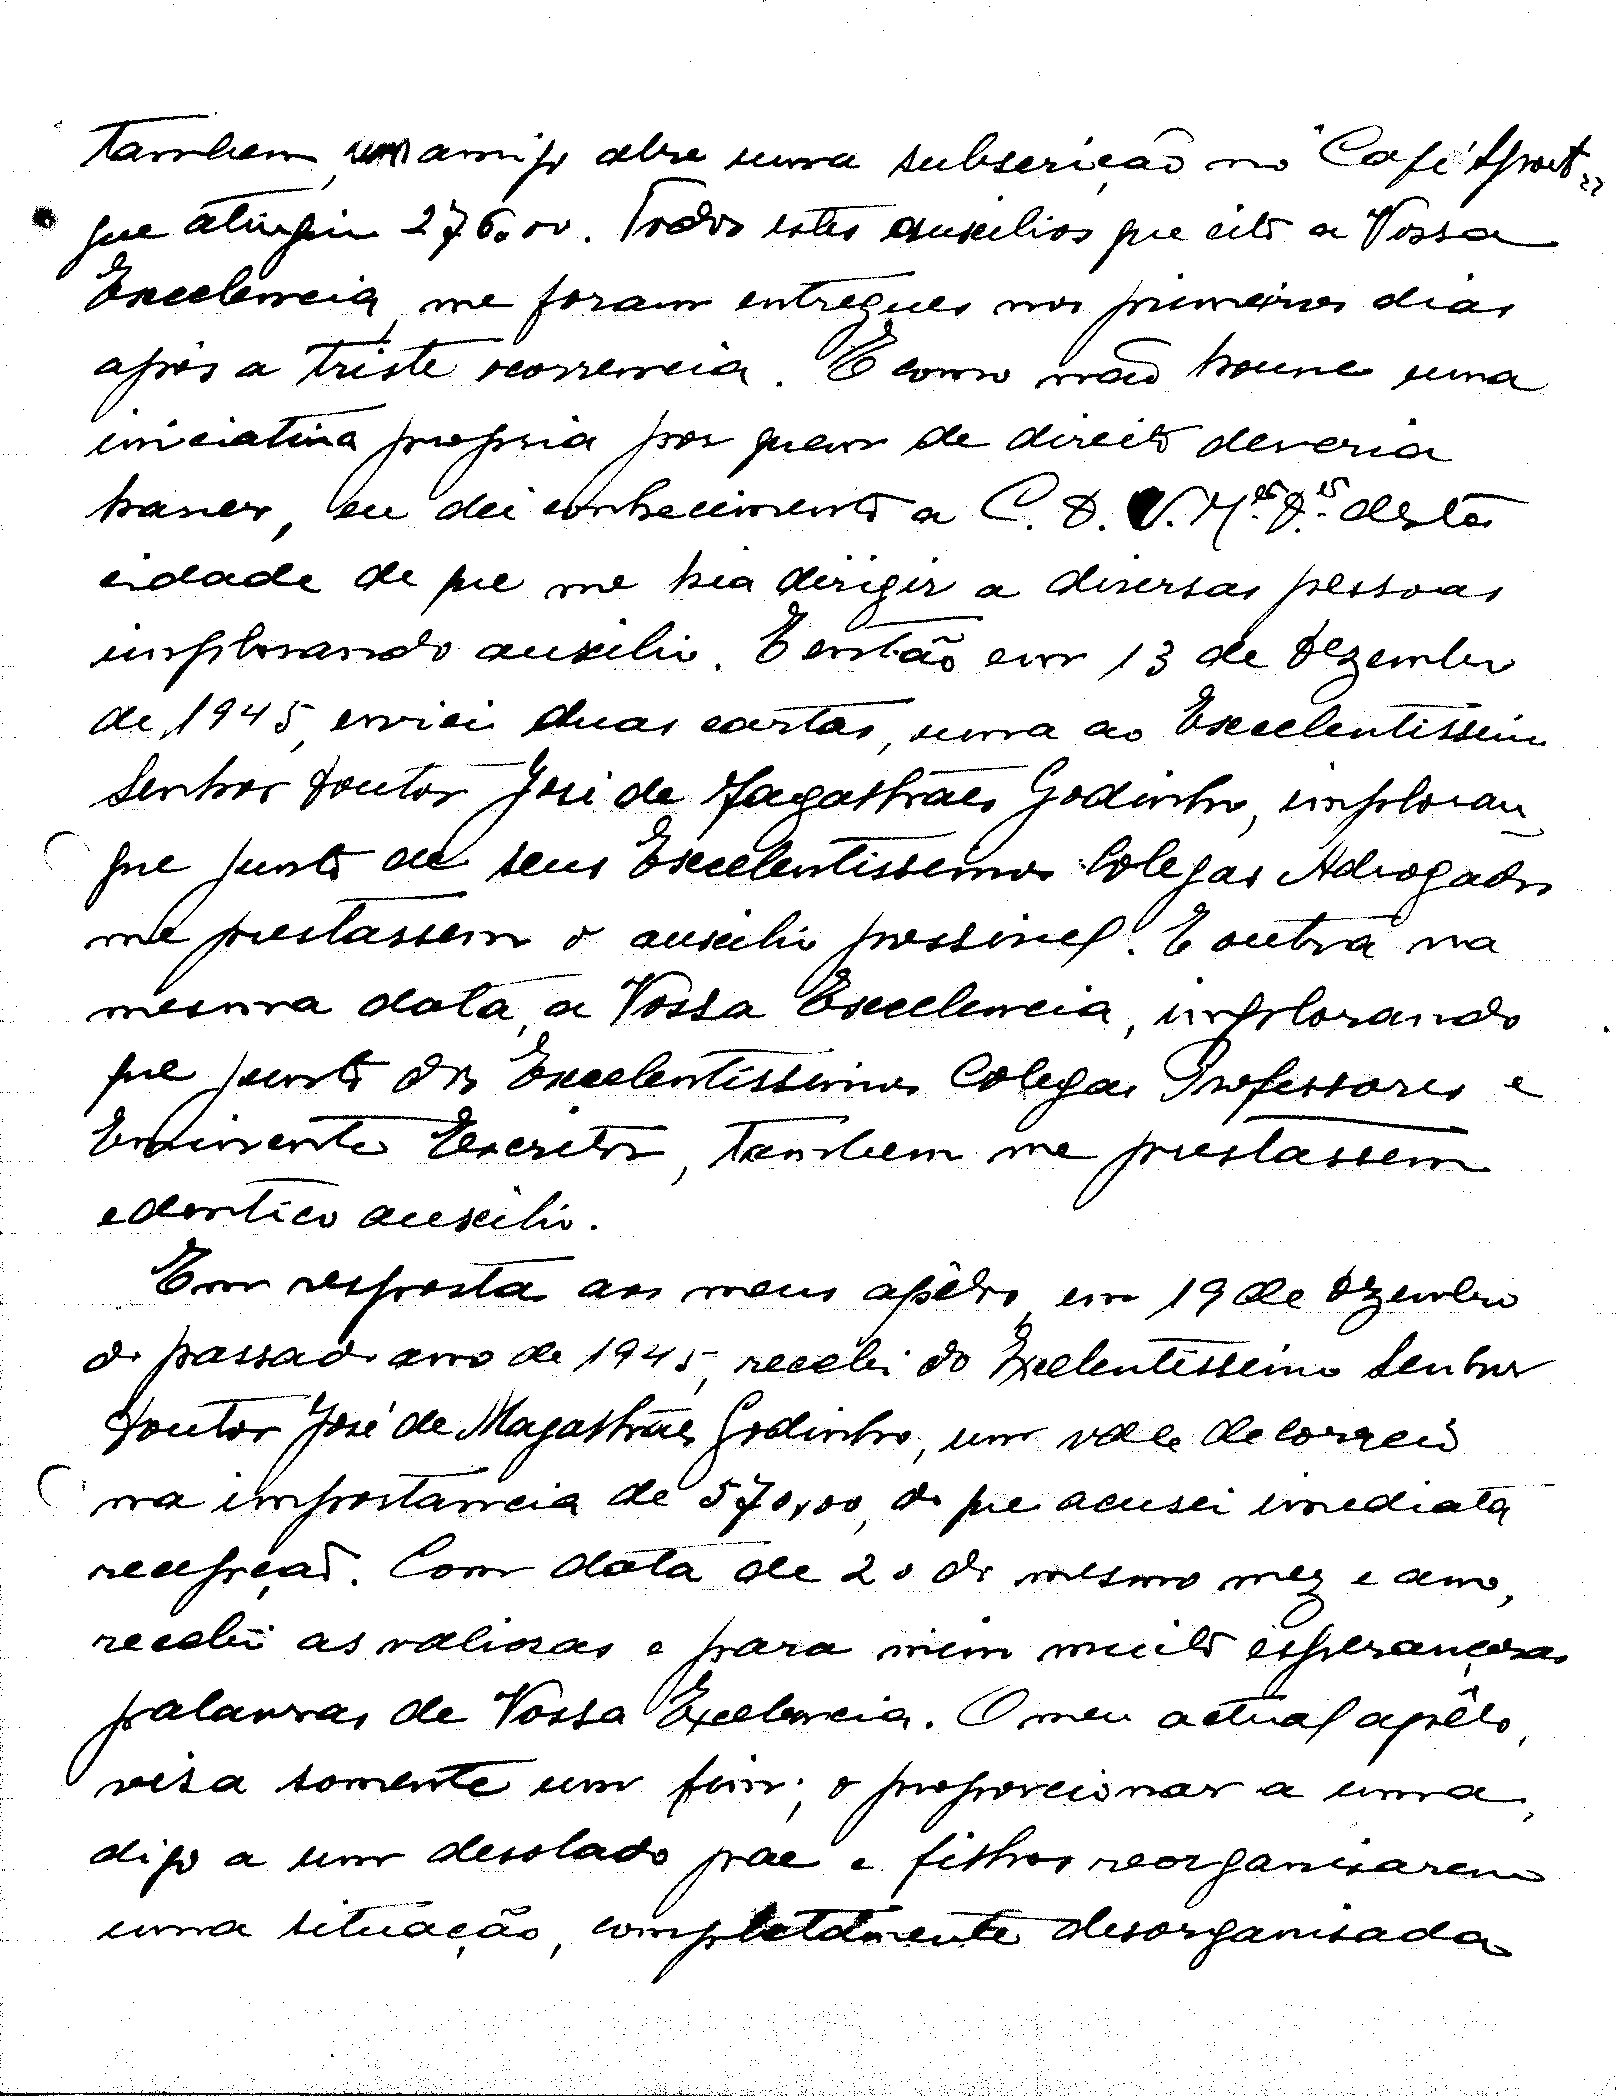 tambem, um amigo abre uma subscrição no "Café Sport"
que atingiu 276,00. Todos estes auxilios que cito a Vossa
Excelencia, me foram entregues nos primeiros dias
após a triste ocorrencia. E como não houve uma
iniciativa propria por quem de direito deveria
haver, eu dei conhecimento a C. D. V. M.es D.es desta
cidade de que me hia dirigir a diversas pessoas
implorando auxilio. E então em 13 de Dezembro
de 1945, enviei duas cartas, uma ao Excelentissimo
Senhor Doutor José de Magalhães Godinho, imploran_
que junto de seus Excelentissimos Colegas Advogados
me prestassem o auxilio possivel. E outra na
mesma data, a Vossa Excelencia, implorando
que junto dos Excelentissimos Colegas Professores e
Eminente Escritor, tambem me prestassem
edentico auxilio.
Em resposta aos meus apêlos, em 19 de Dezembro
do passado ano de 1945, recebi do Excelentissimo Senhor
Doutor José de Magalhães Godinho, um vale de correio
na importancia de 570,00, do que acusei imediata
recepção. Com data de 20 do mesmo mez e ano,
recebi as valiosas e para mim muito esperançosas
palavras de Vossa Excelencia. O meu actual apêlo,
visa somente um fim; o proporcionar a uma,
digo a um desolado pae e filhos reorganisarem
uma situação, completamente desorganisada